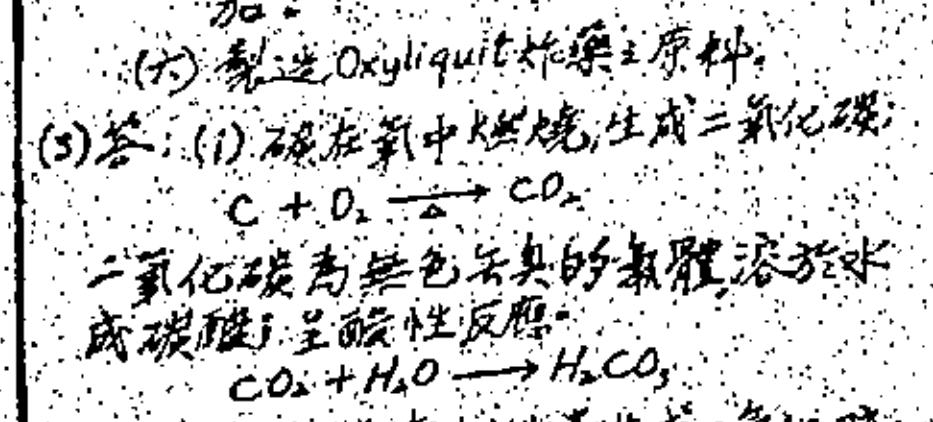 加。
(六) 製造Oxyliquit炸藥之原料。
(3)答:(1) 碳在氧中燃燒,生成二氧化碳;
C + O₂ —△→ CO₂
二氧化碳為無色無臭的氣體,溶於水
成碳酸;呈酸性反應。
CO₂ + H₂O ⟶ H₂CO₃